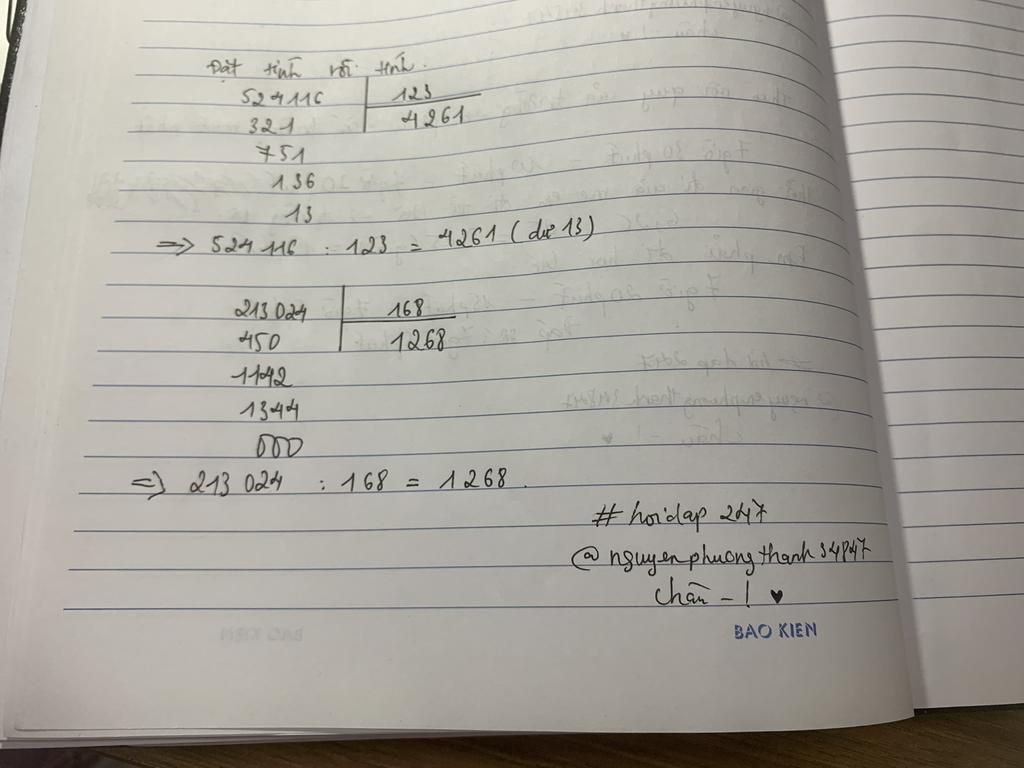 Đặt tính rồi tính.
524116 123
321 4261
751
136
13
=> 524 116 : 123 = 4261 (dư 13)
213024 168
450 1268
1142
1344
000
=> 213 024 : 168 = 1268.
# hoidap 247
@nguyenphuongthanh34847
BAO KIEN